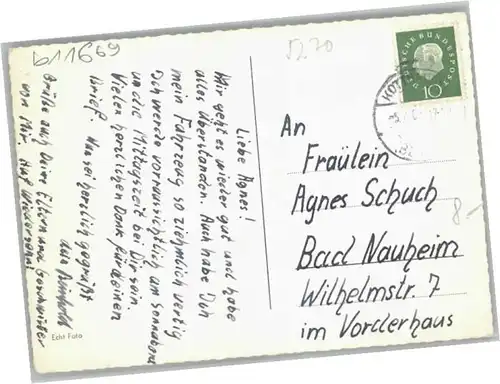 b11669
5270
DEUTSCHE BUNDESPOST
10
Liebe Agnes!
Mir geht es wieder gut und habe
alles Überstanden. Auch habe Ich
mein Fahrzeug so ziehmlich vertig
Ich werde vorraussichtlich am Sonnabend
um die Mittagszeit bei Dir sein.
Vielen herzlichen Dank für deinen
Brief. Nun sei herzlich gegrüßt
aus
Grüße auch Deine Eltern und Geschwister
von Mir. Auf Wiedersehn!
An
Fräulein
Agnes Schuch
Bad Nauheim
Wilhelmstr. 7
im Vorderhaus
8.-
Echt Foto